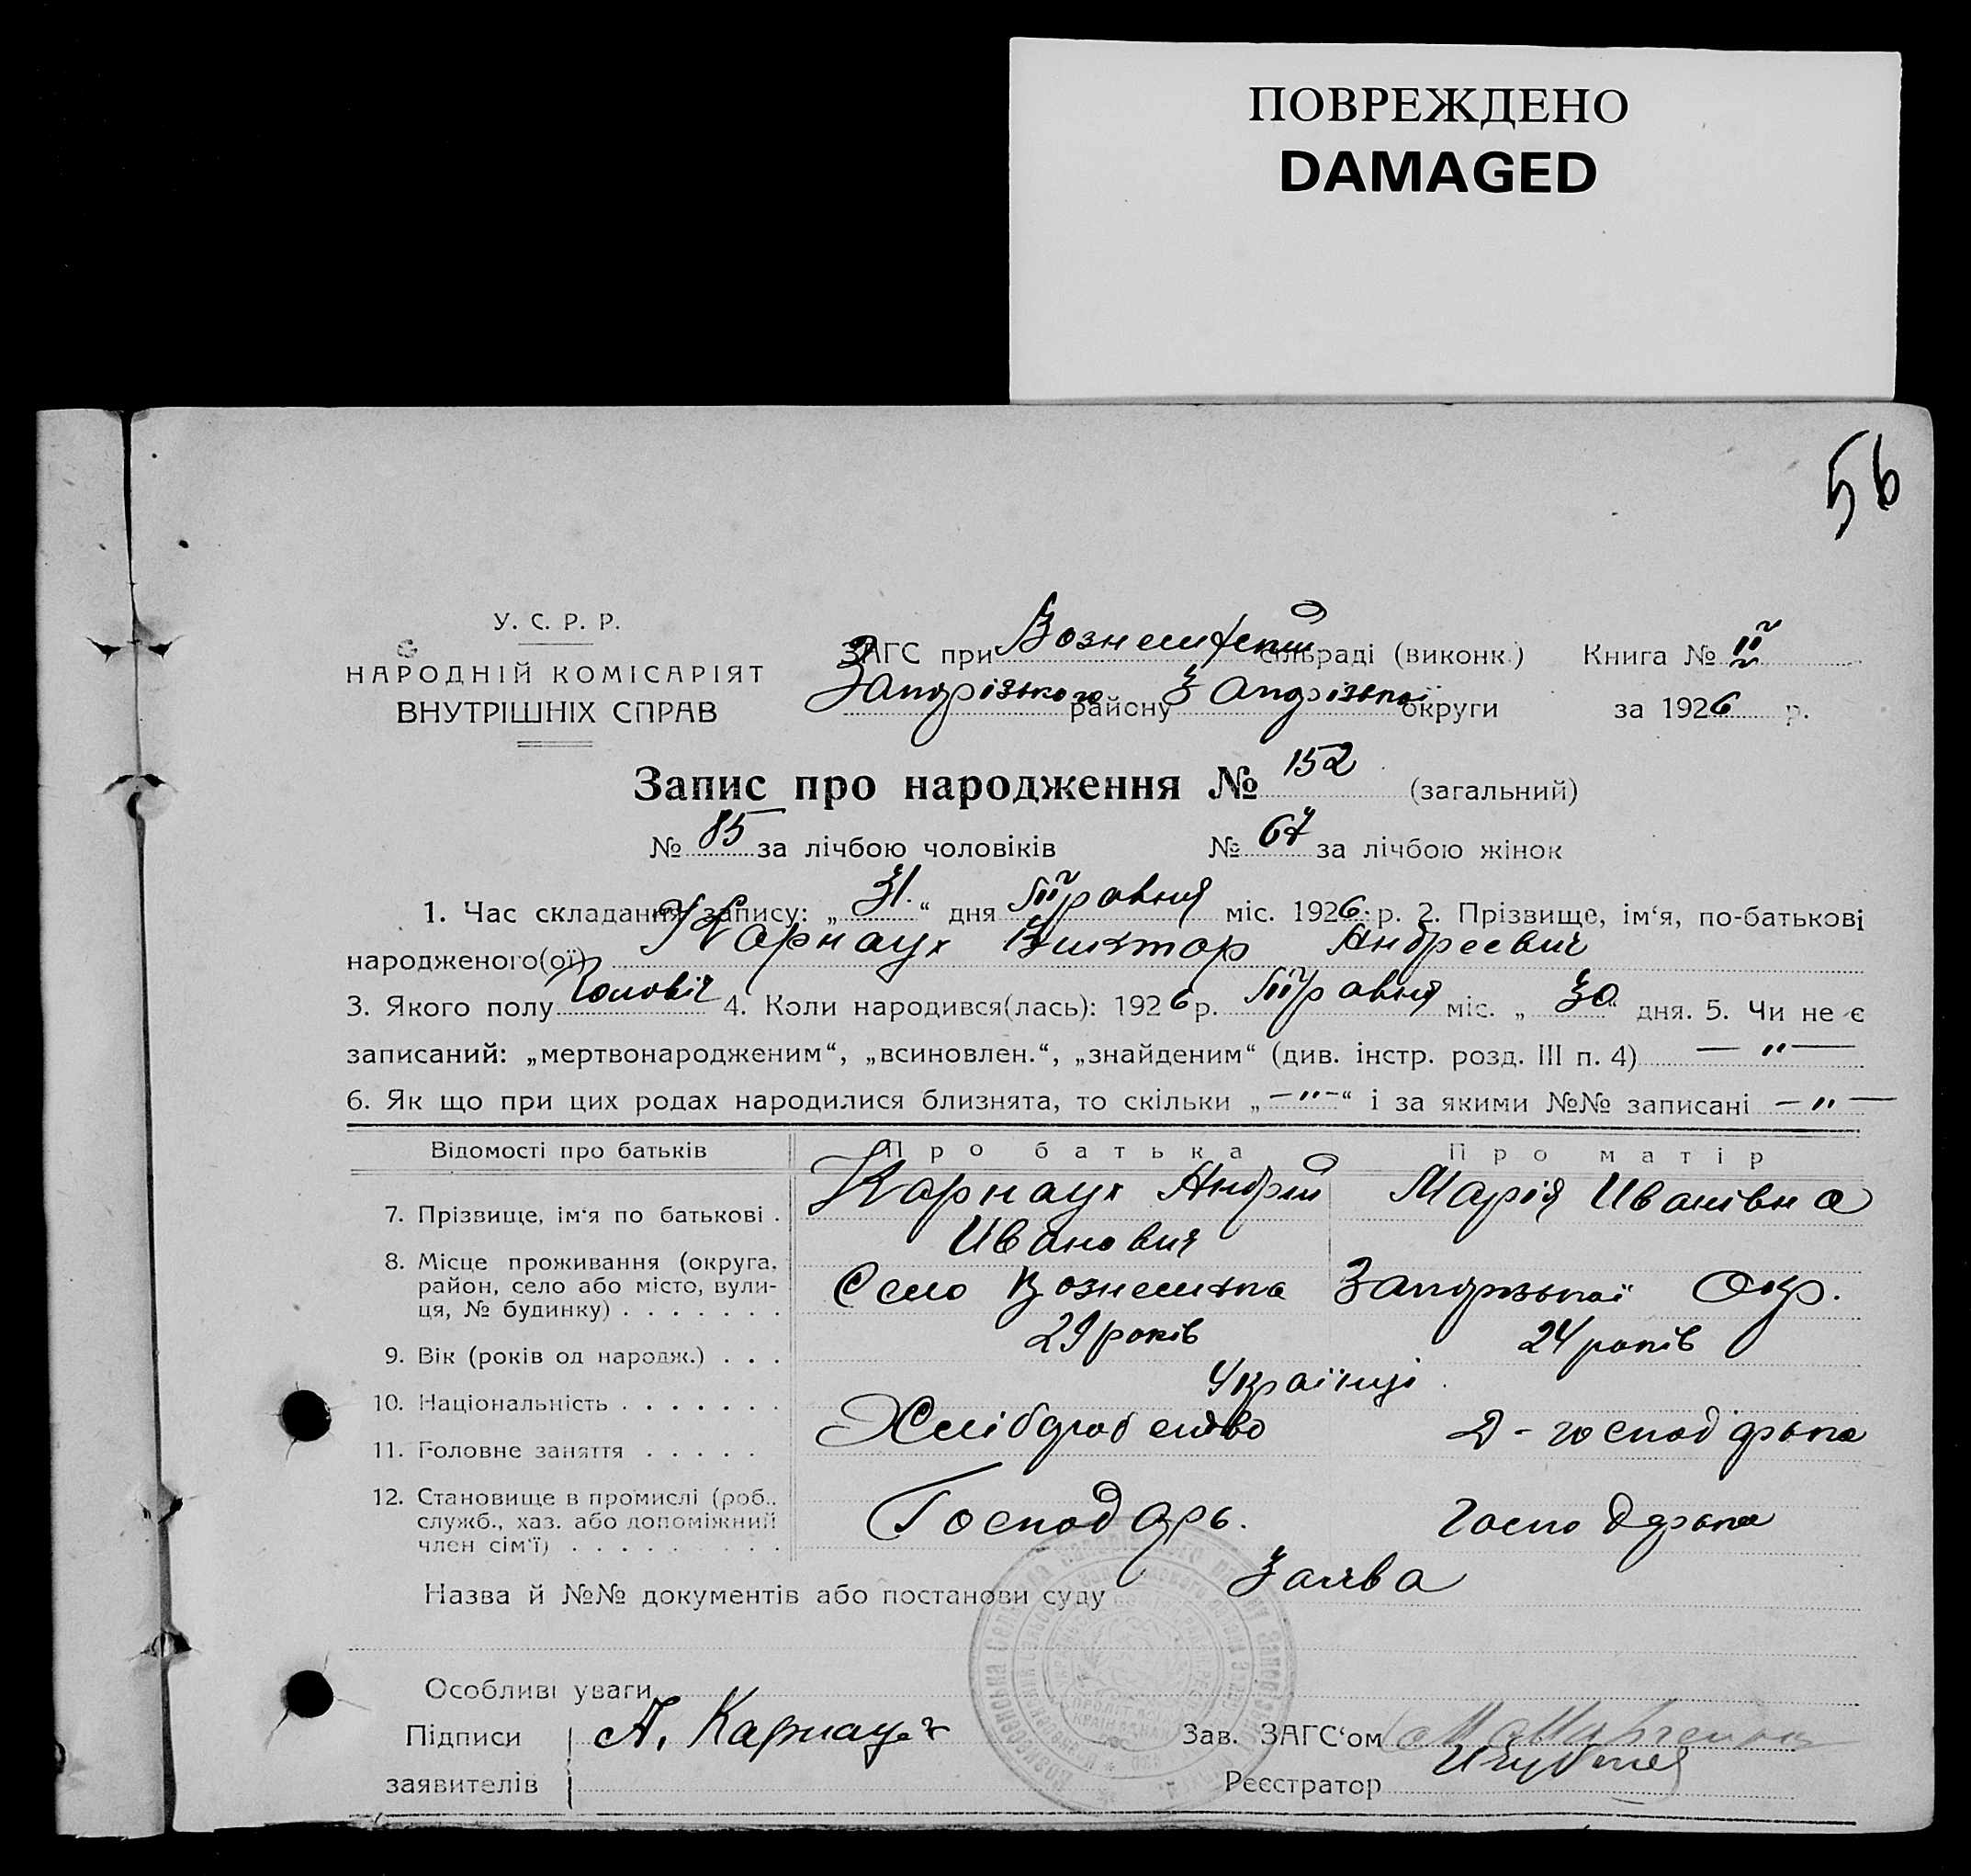 ПОВРЕЖДЕНО
DAMAGED
56
У. С. Р. Р.
НАРОДНІЙ КОМІСАРІЯТ
ВНУТРІШНІХ СПРАВ
ЗАГС при сільраді (виконк.) Книга № II
Запорізького району Запорізької округи за 1926 р.
Запис про народження № 152 (загальний)
№ 85 за лічбою чоловіків № 67 за лічбою жінок
1. Час складання запису: „31.“ дня Травня міс. 1926 р. 2. Прізвище, ім‘я, по-батькові
народженого(ої) Карнаух Виктор Андреевич
3. Якого полу Чоловіч 4. Коли народився(лась): 1926 р. Травня міс. „30“ дня. 5. Чи не є
записаний: „мертвонародженим“, „всиновлен.“, „знайденим“ (див. інстр. розд. III п. 4) — „ —
6. Як що при цих родах народилися близнята, то скільки „— „ —“ і за якими №№ записані — „ —
Відомості про батьків Про батька Про матір
7. Прізвище, ім‘я по батькові . Карнаух Андрій Иванович Марія Иванівна
8. Місце проживання (округа, район, село або місто, вулиця, № будинку) . . . . . . . Село Вознесенка Запорізької Окр.
9. Вік (років од народж.) . . . 29 років 24 років
10. Національність . . . . . . . Українці
11. Головне заняття . . . . . Хліборобство Д-господарька
12. Становище в промислі (роб., служб., хаз. або допоміжний член сім‘ї) . . . . . . . . . Господарь. Господарька
Назва й №№ документів або постанови суду Заява
Особливі уваги
Підписи заявителів А. Карнаух
Зав. ЗАГС‘ом
Реєстратор